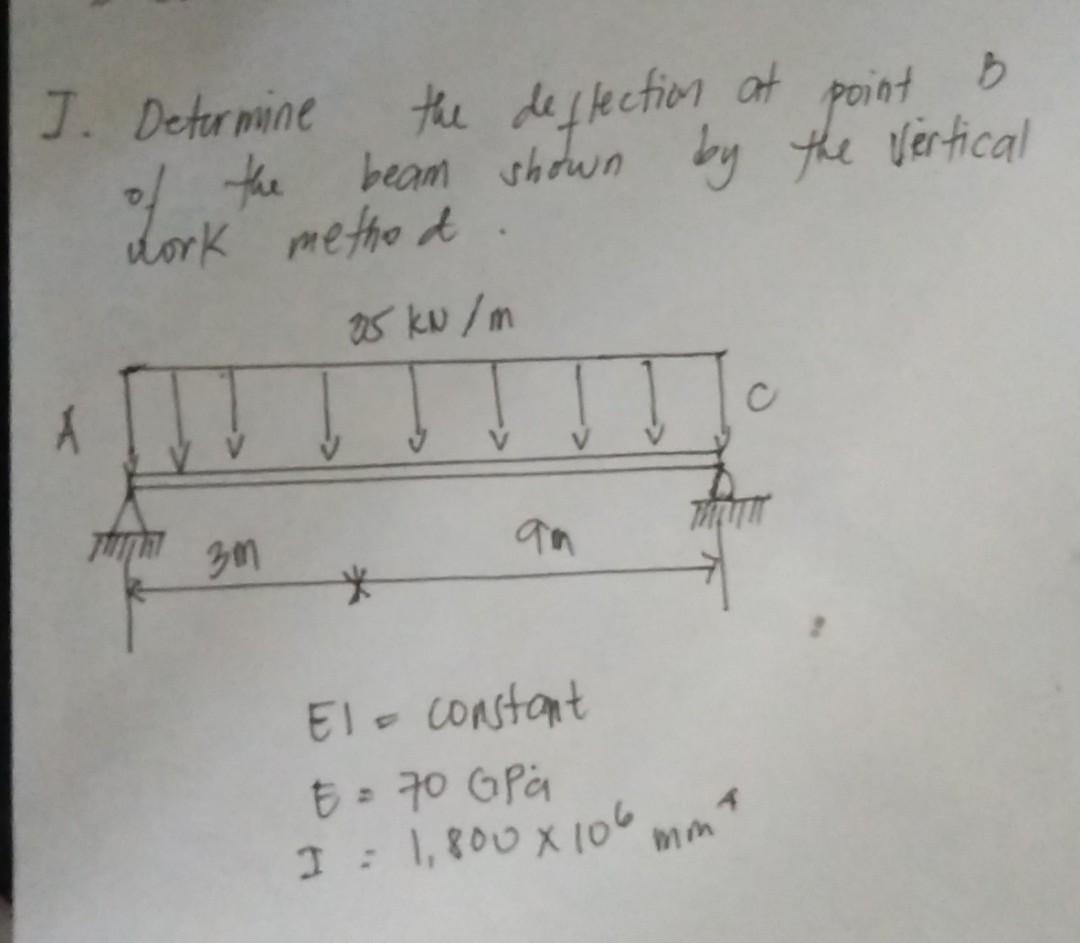 I. Determine the deflection at point B
of the beam shown by the Vertical
work method.
25 kN/m
A
C
3m
9m
EI = constant
E = 70 GPa
I = 1,800 x 10⁶ mm⁴